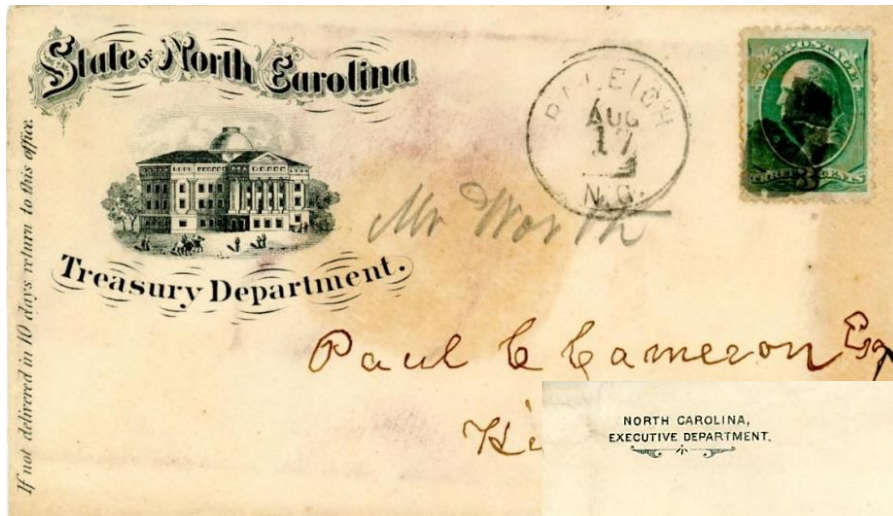 State of North Carolina
Treasury Department.
If not delivered in 10 days return to this office.
RALEIGH
AUG
17
N.C.
U.S. POSTAGE
THREE 3 CENTS
Mr Worth
Paul C Cameron Esq
Hi
NORTH CAROLINA,
EXECUTIVE DEPARTMENT.